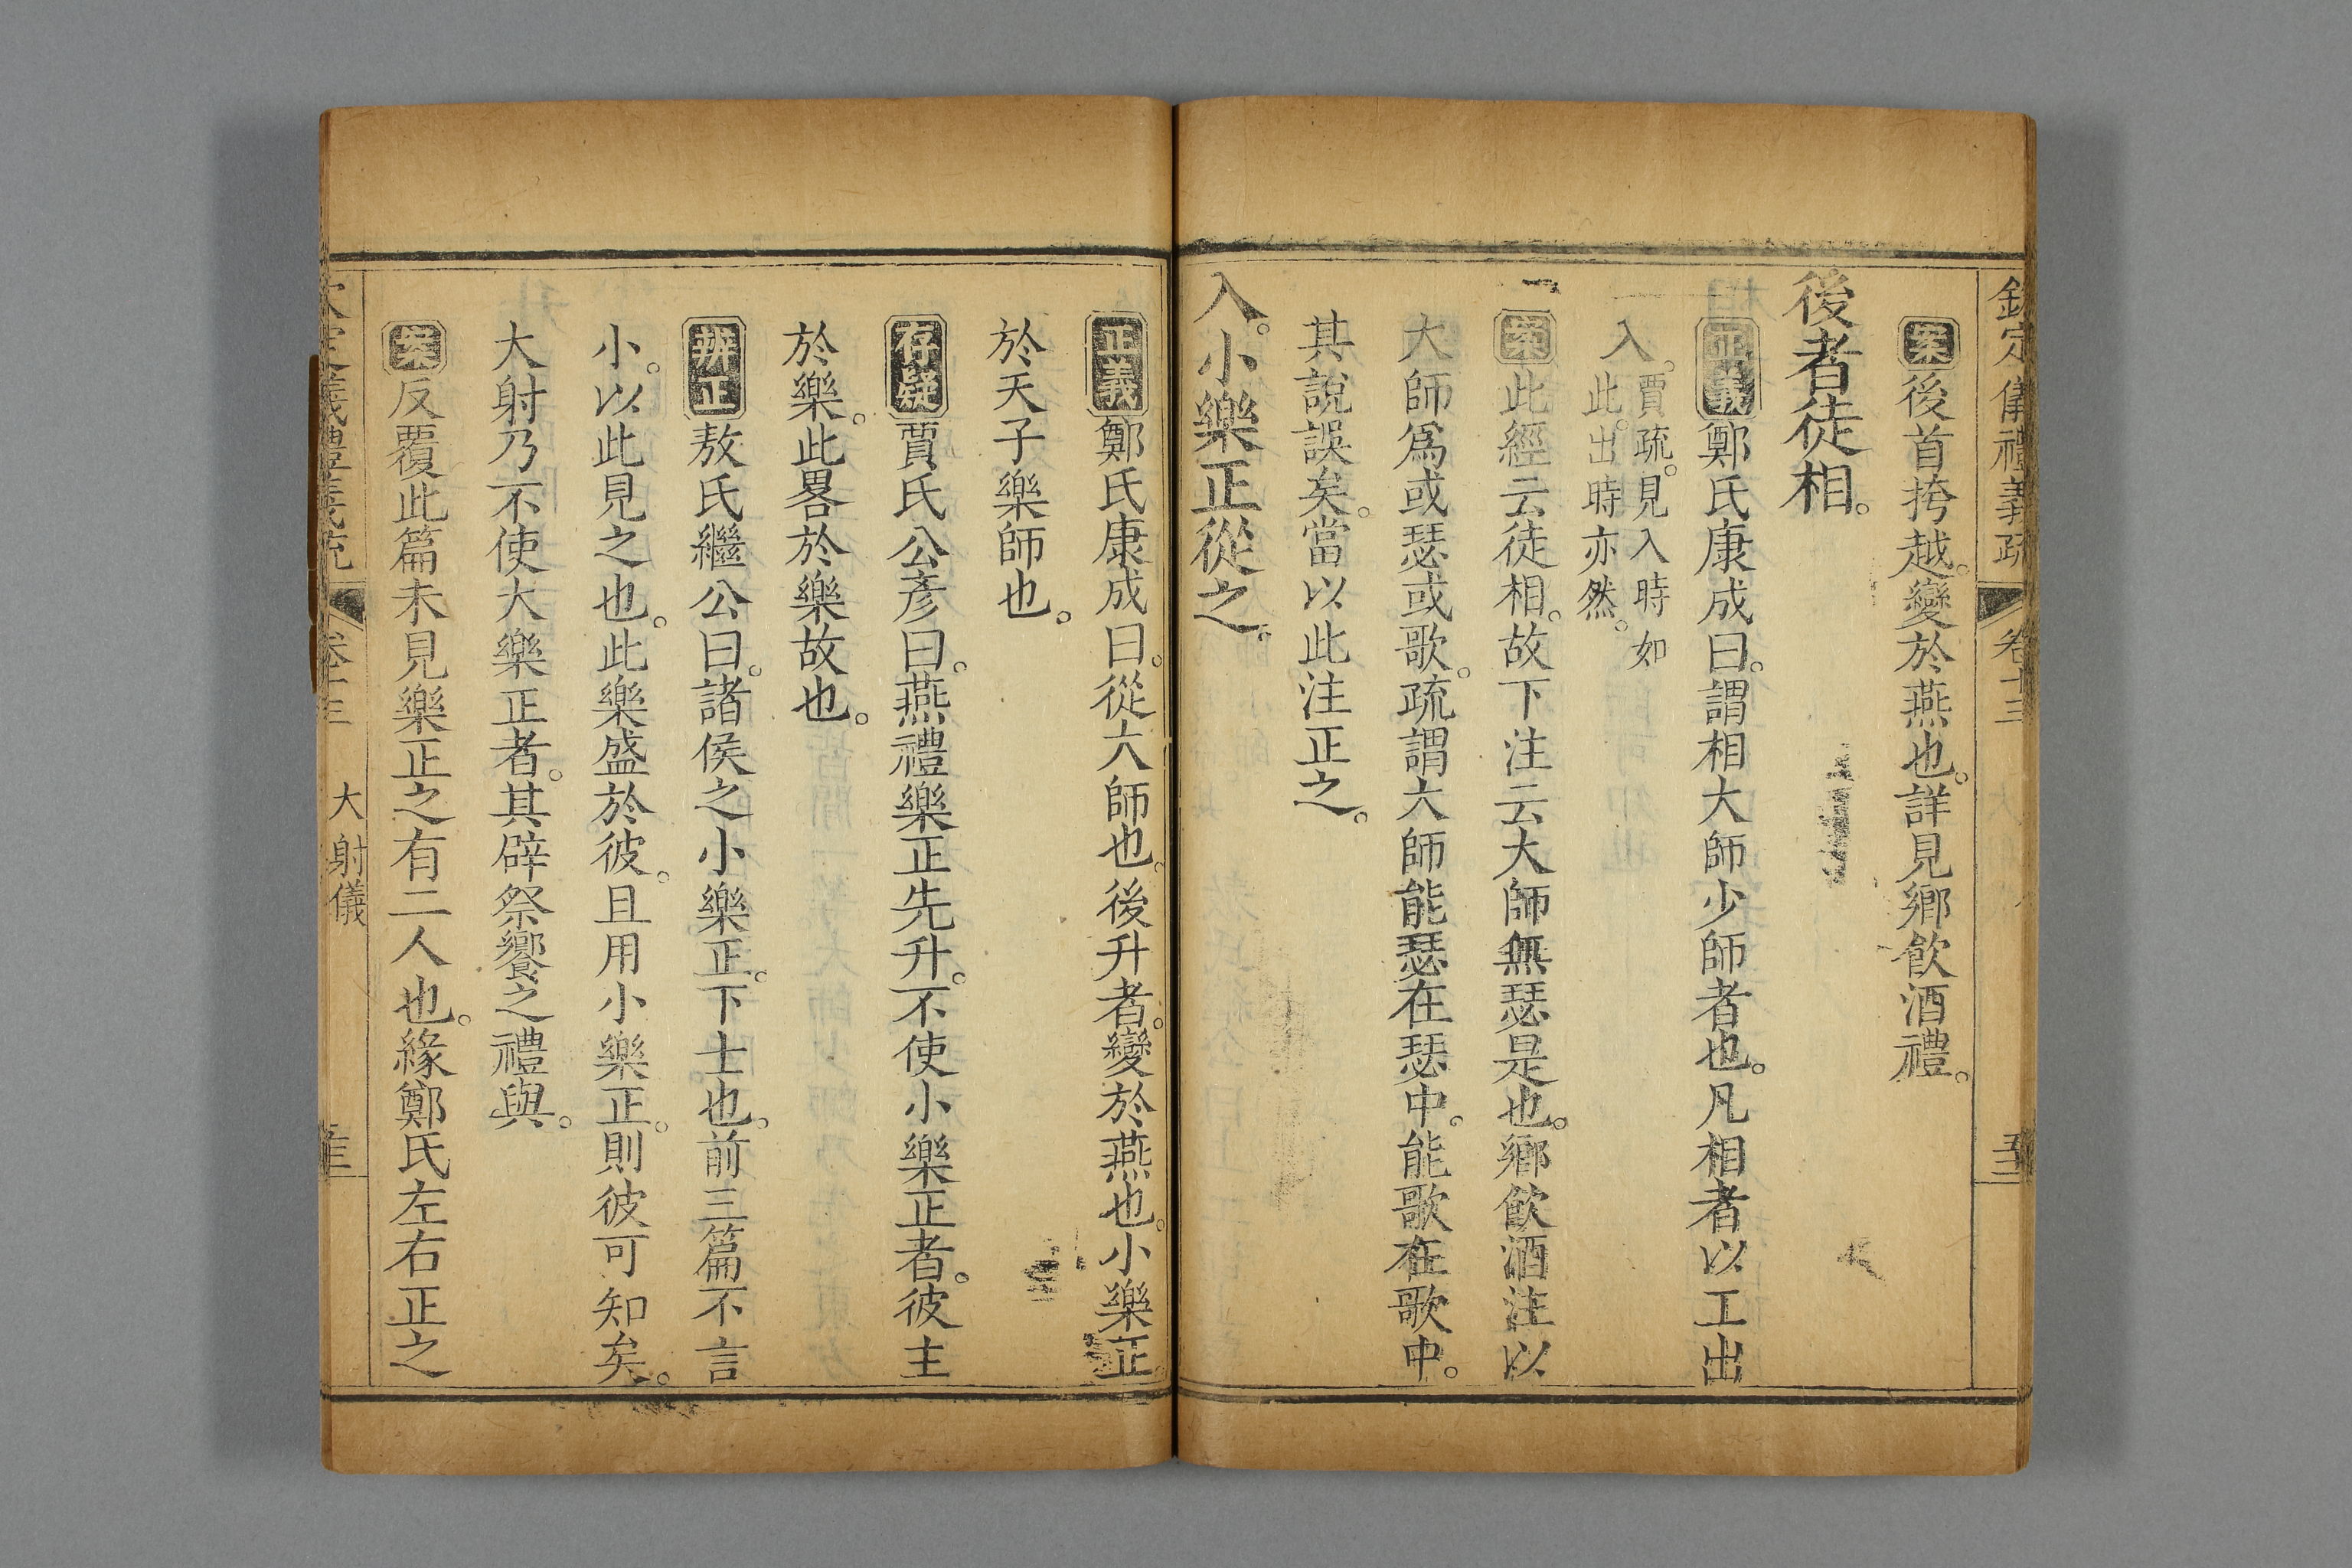 欽定儀禮義疏 卷十三
案後首挎越。變於燕也。詳見鄉飲酒禮。
後者徒相。
正義鄭氏康成曰。謂相大師少師者也。凡相者以工出
入。賈疏。見入時如此。出時亦然。
案此經云徒相。故下注云大師無瑟是也。鄉飲酒注以
大師爲或瑟或歌。疏謂大師能瑟在瑟中。能歌在歌中。
其說誤矣。當以此注正之。
入。小樂正從之。
正義鄭氏康成曰。從大師也。後升者。變於燕也。小樂正
於天子樂師也。
存疑賈氏公彥曰。燕禮樂正先升。不使小樂正者。彼主
於樂。此畧於樂故也。
辨正敖氏繼公曰。諸侯之小樂正。下士也。前三篇不言
小。以此見之也。此樂盛於彼。且用小樂正。則彼可知矣。
大射乃不使大樂正者。其辟祭饗之禮與。
案反覆此篇未見樂正之有二人也。緣鄭氏左右正之
欽定儀禮義疏 卷十三 大射儀